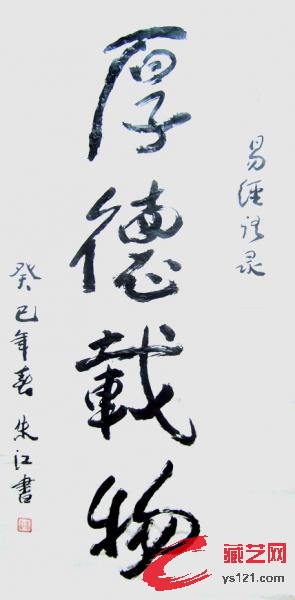 易經語录
厚德載物
癸巳年春 朱江書
藏艺网
ys121.com